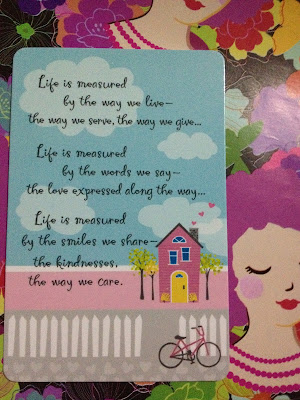 Life is measured
by the way we live—
the way we serve, the way we give...
Life is measured
by the words we say—
the love expressed along the way...
Life is measured
by the smiles we share—
the kindnesses,
the way we care.